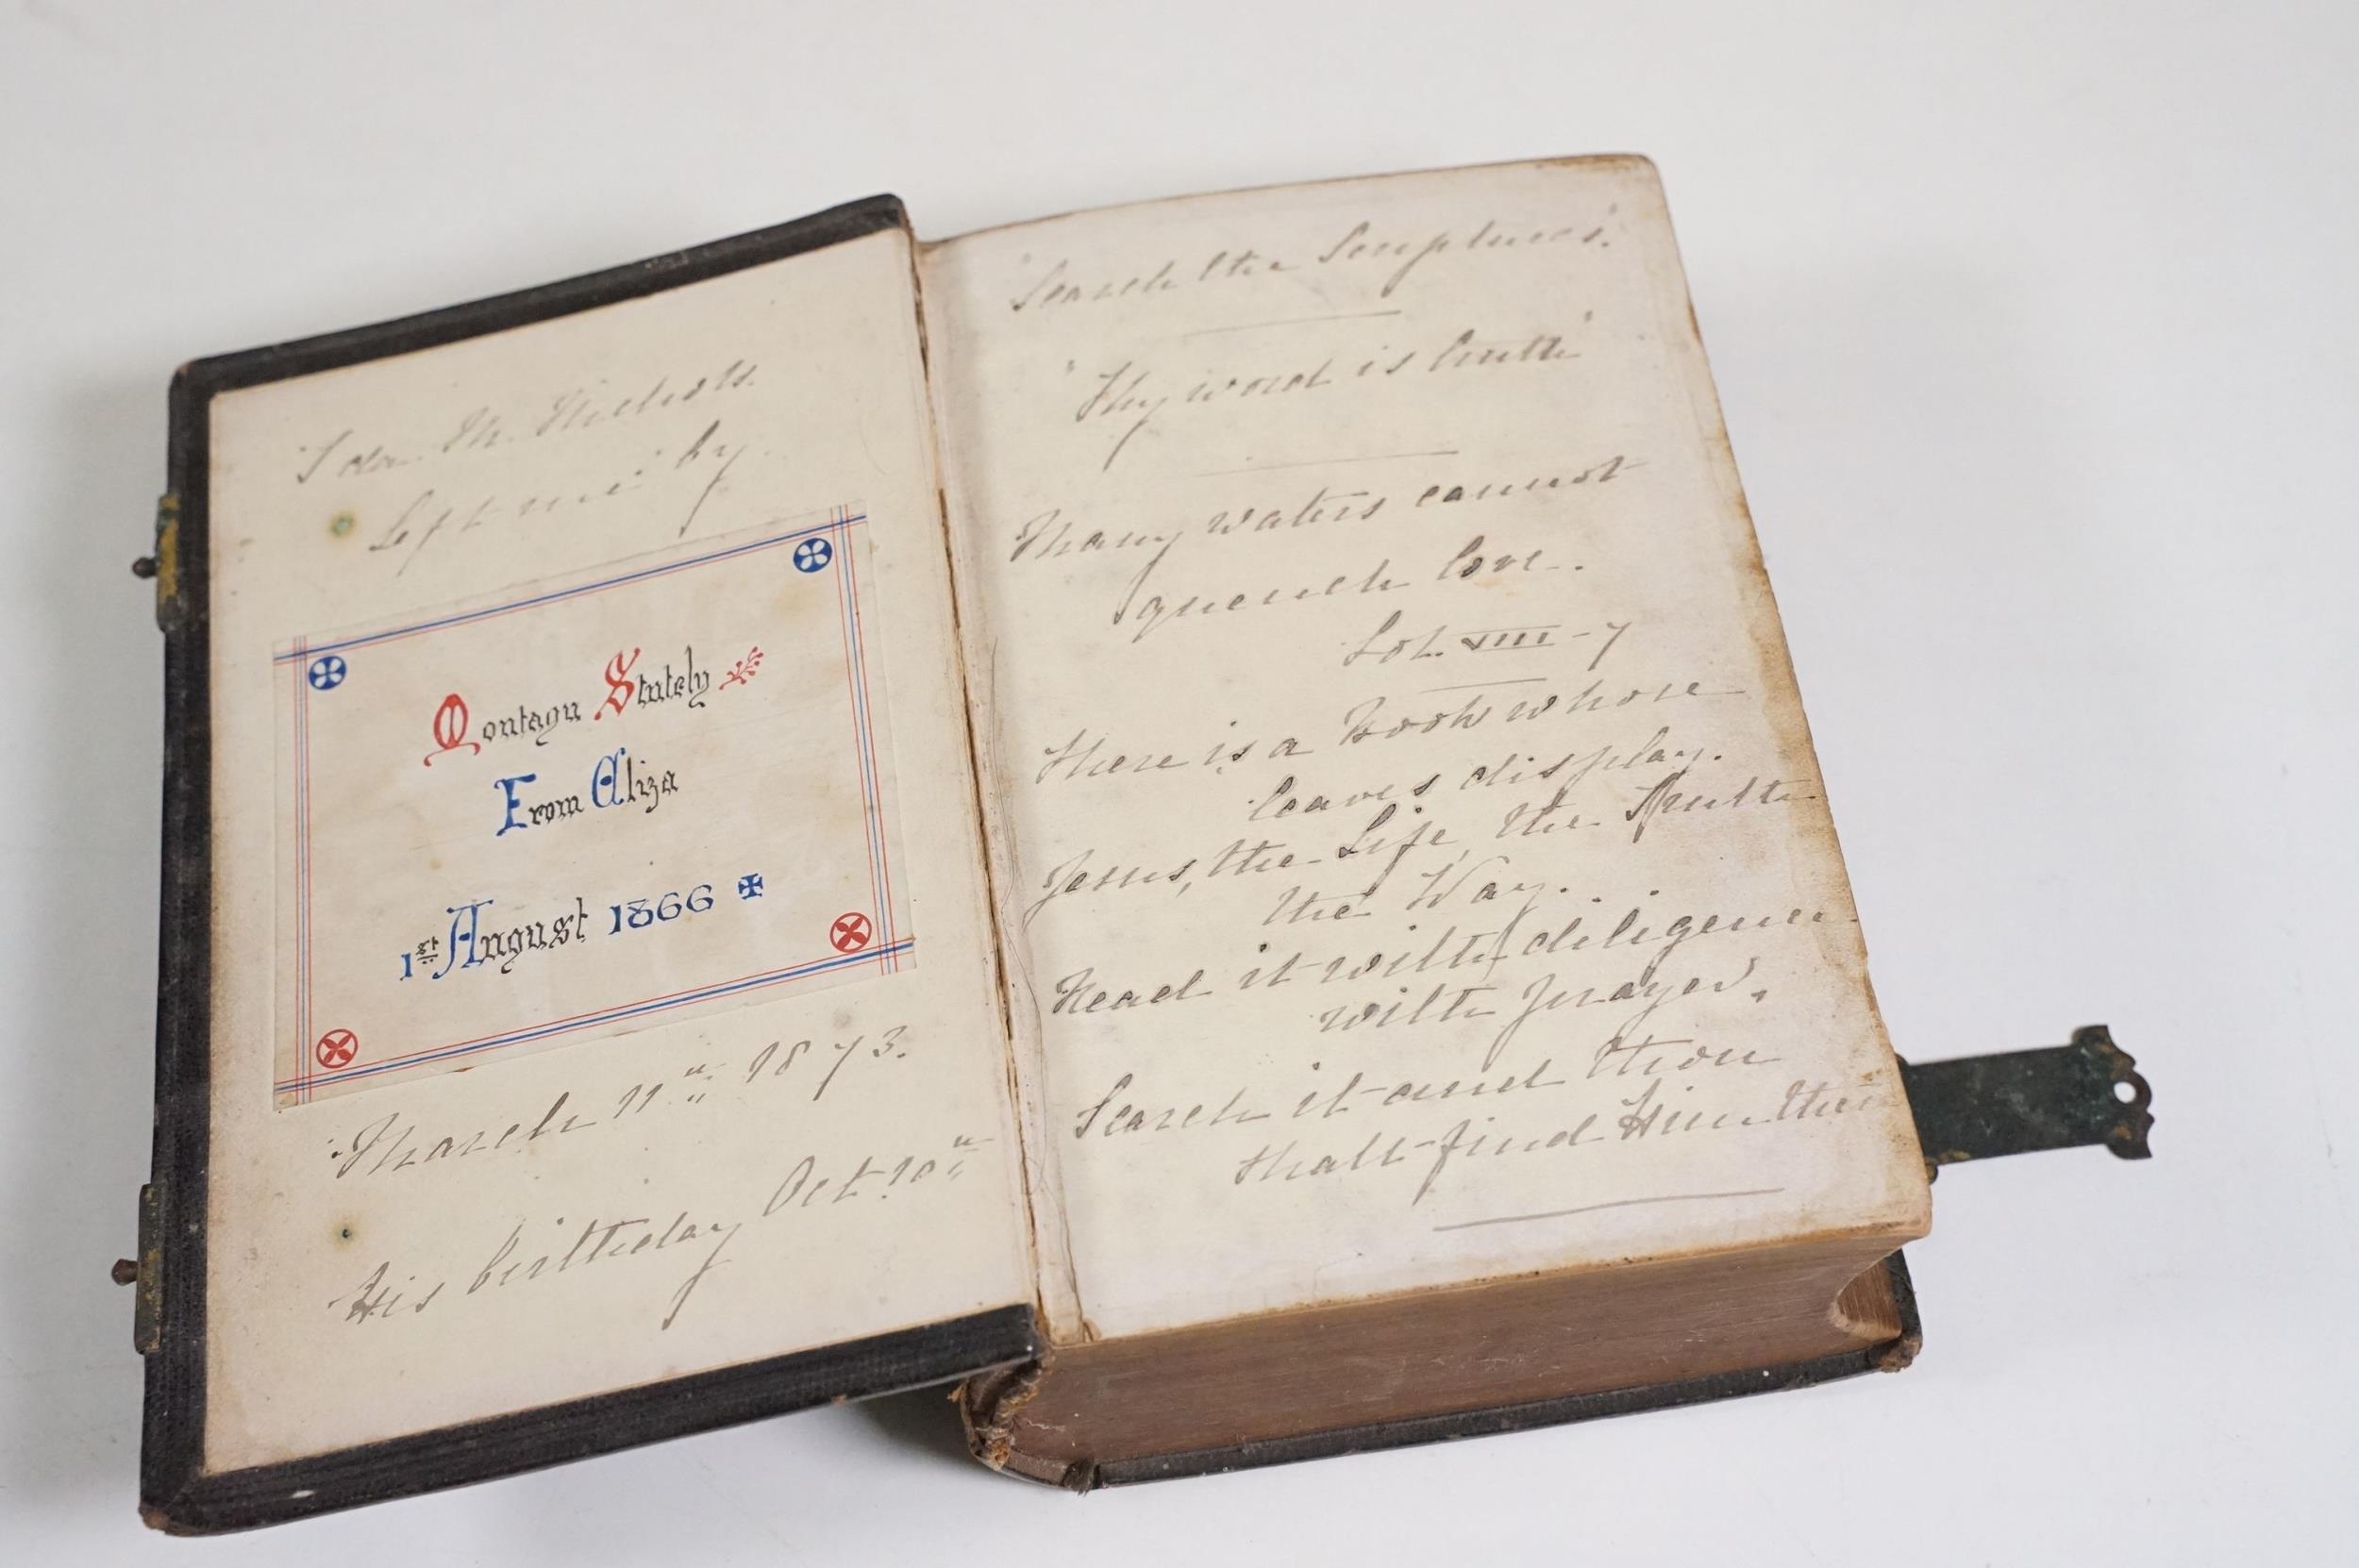 Ida M. Nicholls.
Left me by
Montagu Stutely
From Eliza
1st August 1866
March 11th 1873.
His birthday Oct. 10th
"Search the Scriptures".
"Thy word is truth"
Many waters cannot
quench love.
Sol. VIII-7
There is a Book whose
leaves display.
Jesus, the Life, the Truth
the Way.
Read it with diligence
with prayer,
Search it and thou
shalt find Him there